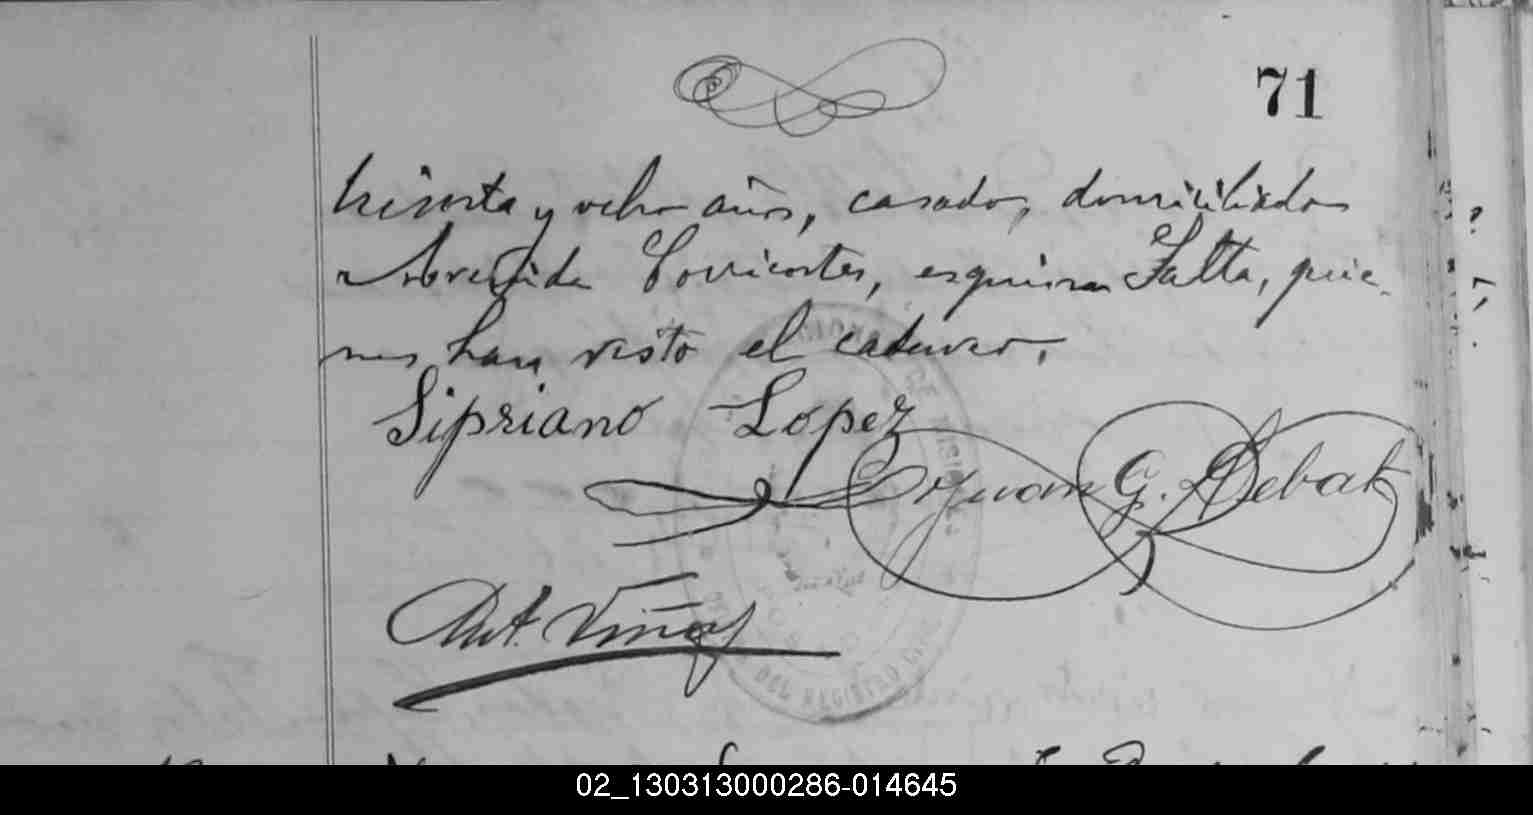 71
treinta y ocho años, casado, domiciliados
Avenida Corrientes, esquina Salta, quie-
nes han visto el cadaver.
Sipriano Lopez
Juan G. Debat
Ant. Viñas
DEL REGISTRO CIVIL
02_130313000286-014645